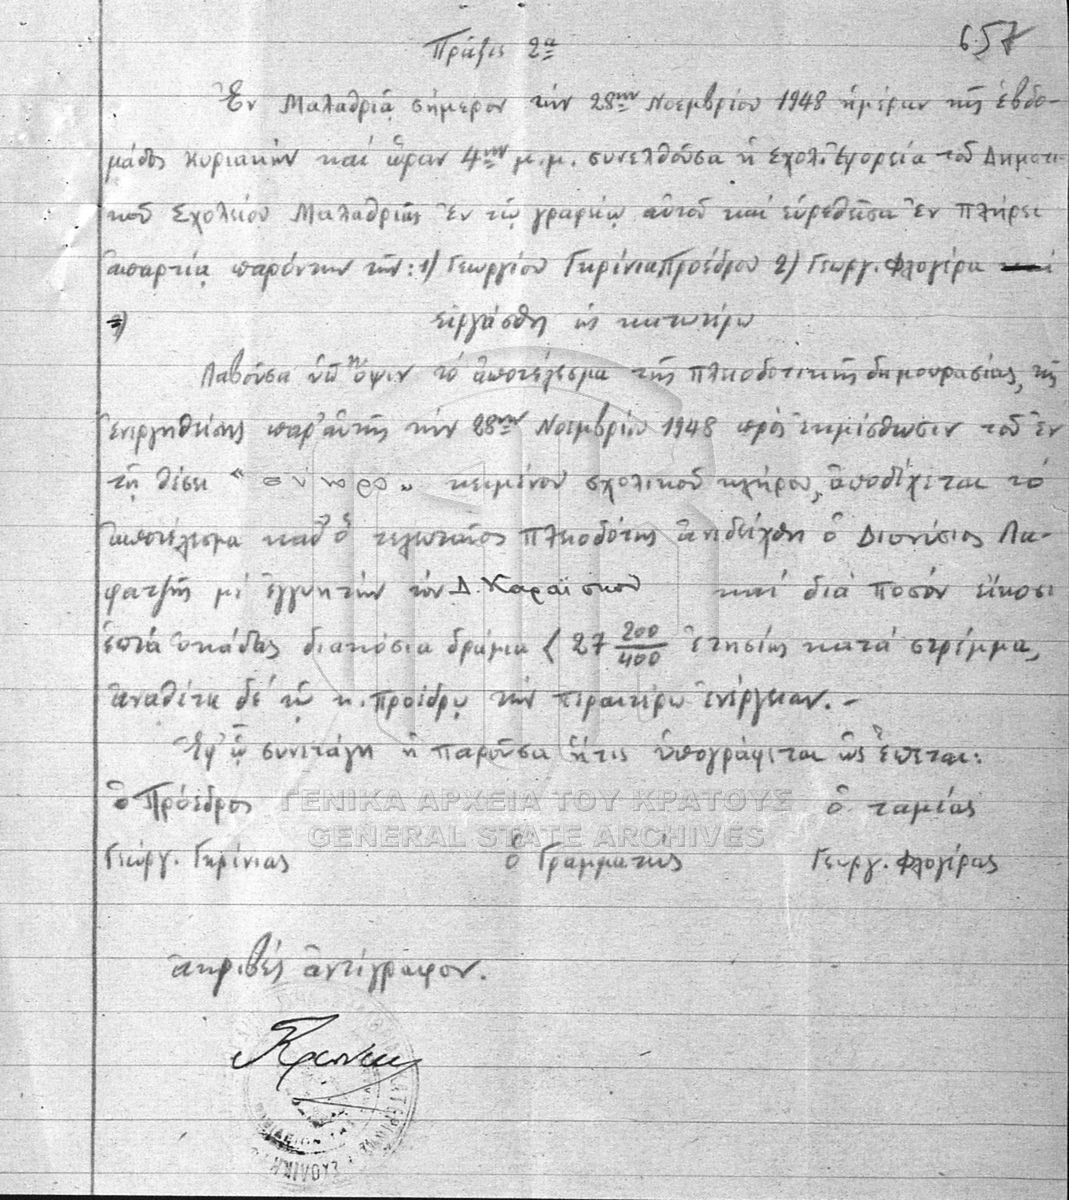 657
Πρᾶξις 2α
Ἐν Μαλαθριᾷ σήμερον τὴν 28ην Νοεμβρίου 1948 ἡμέραν τῆς ἑβδο-
μάδος Κυριακὴν καὶ ὥραν 4ην μ.μ. συνελθοῦσα ἡ Σχολ. Ἐφορεία τοῦ Δημοτι-
κοῦ Σχολείου Μαλαθριᾶς ἐν τῷ γραφείῳ αὐτοῦ καὶ εὑρεθεῖσα ἐν πλήρει
ἀπαρτίᾳ παρόντων τῶν: 1) Γεωργίου Γκρίνια Προέδρου 2) Γεωργ. Φλογέρα καὶ
3) εἰργάσθη ὡς κατωτέρω
Λαβοῦσα ὑπ' ὄψιν τὸ ἀποτέλεσμα τῆς πλειοδοτικῆς δημοπρασίας, τῆς
ἐνεργηθείσης παρ' αὐτῆς τὴν 28ην Νοεμβρίου 1948 πρὸς ἐκμίσθωσιν τοῦ ἐν
τῇ θέσει " σύνορο " κειμένου σχολικοῦ κλήρου, ἀποδέχεται τὸ
ἀποτέλεσμα καθ' ὃ τελευταῖος πλειοδότης ἀνεδείχθη ὁ Διονύσιος Λα-
φατζῆς μὲ ἐγγυητὴν τὸν Δ. Καραΐσκου καὶ διὰ ποσὸν εἴκοσι
ἑπτὰ ὀκάδας διακόσια δράμια ( 27 200/400 ἐτησίως κατὰ στρέμμα,
ἀναθέτει δὲ τῷ κ. προέδρῳ τὴν περαιτέρω ἐνέργειαν. -
Ἐφ' ᾧ συνετάγη ἡ παροῦσα ἥτις ὑπογράφεται ὡς ἕπεται:
ὁ Πρόεδρος ὁ ταμίας
ΓΕΝΙΚΑ ΑΡΧΕΙΑ ΤΟΥ ΚΡΑΤΟΥΣ
GENERAL STATE ARCHIVES
Γεώργ. Γκρίνιας ὁ Γραμματεὺς Γεωργ. Φλογέρας
ἀκριβὲς ἀντίγραφον.